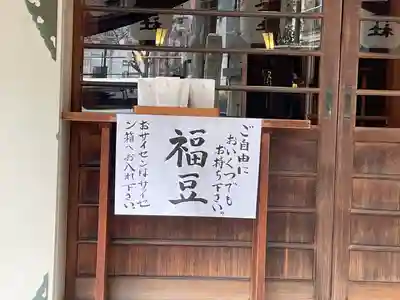 ご自由に
おいくつでも
お持ち下さい。
福豆
おサイセンはサイセ
ン箱へお入れ下さい